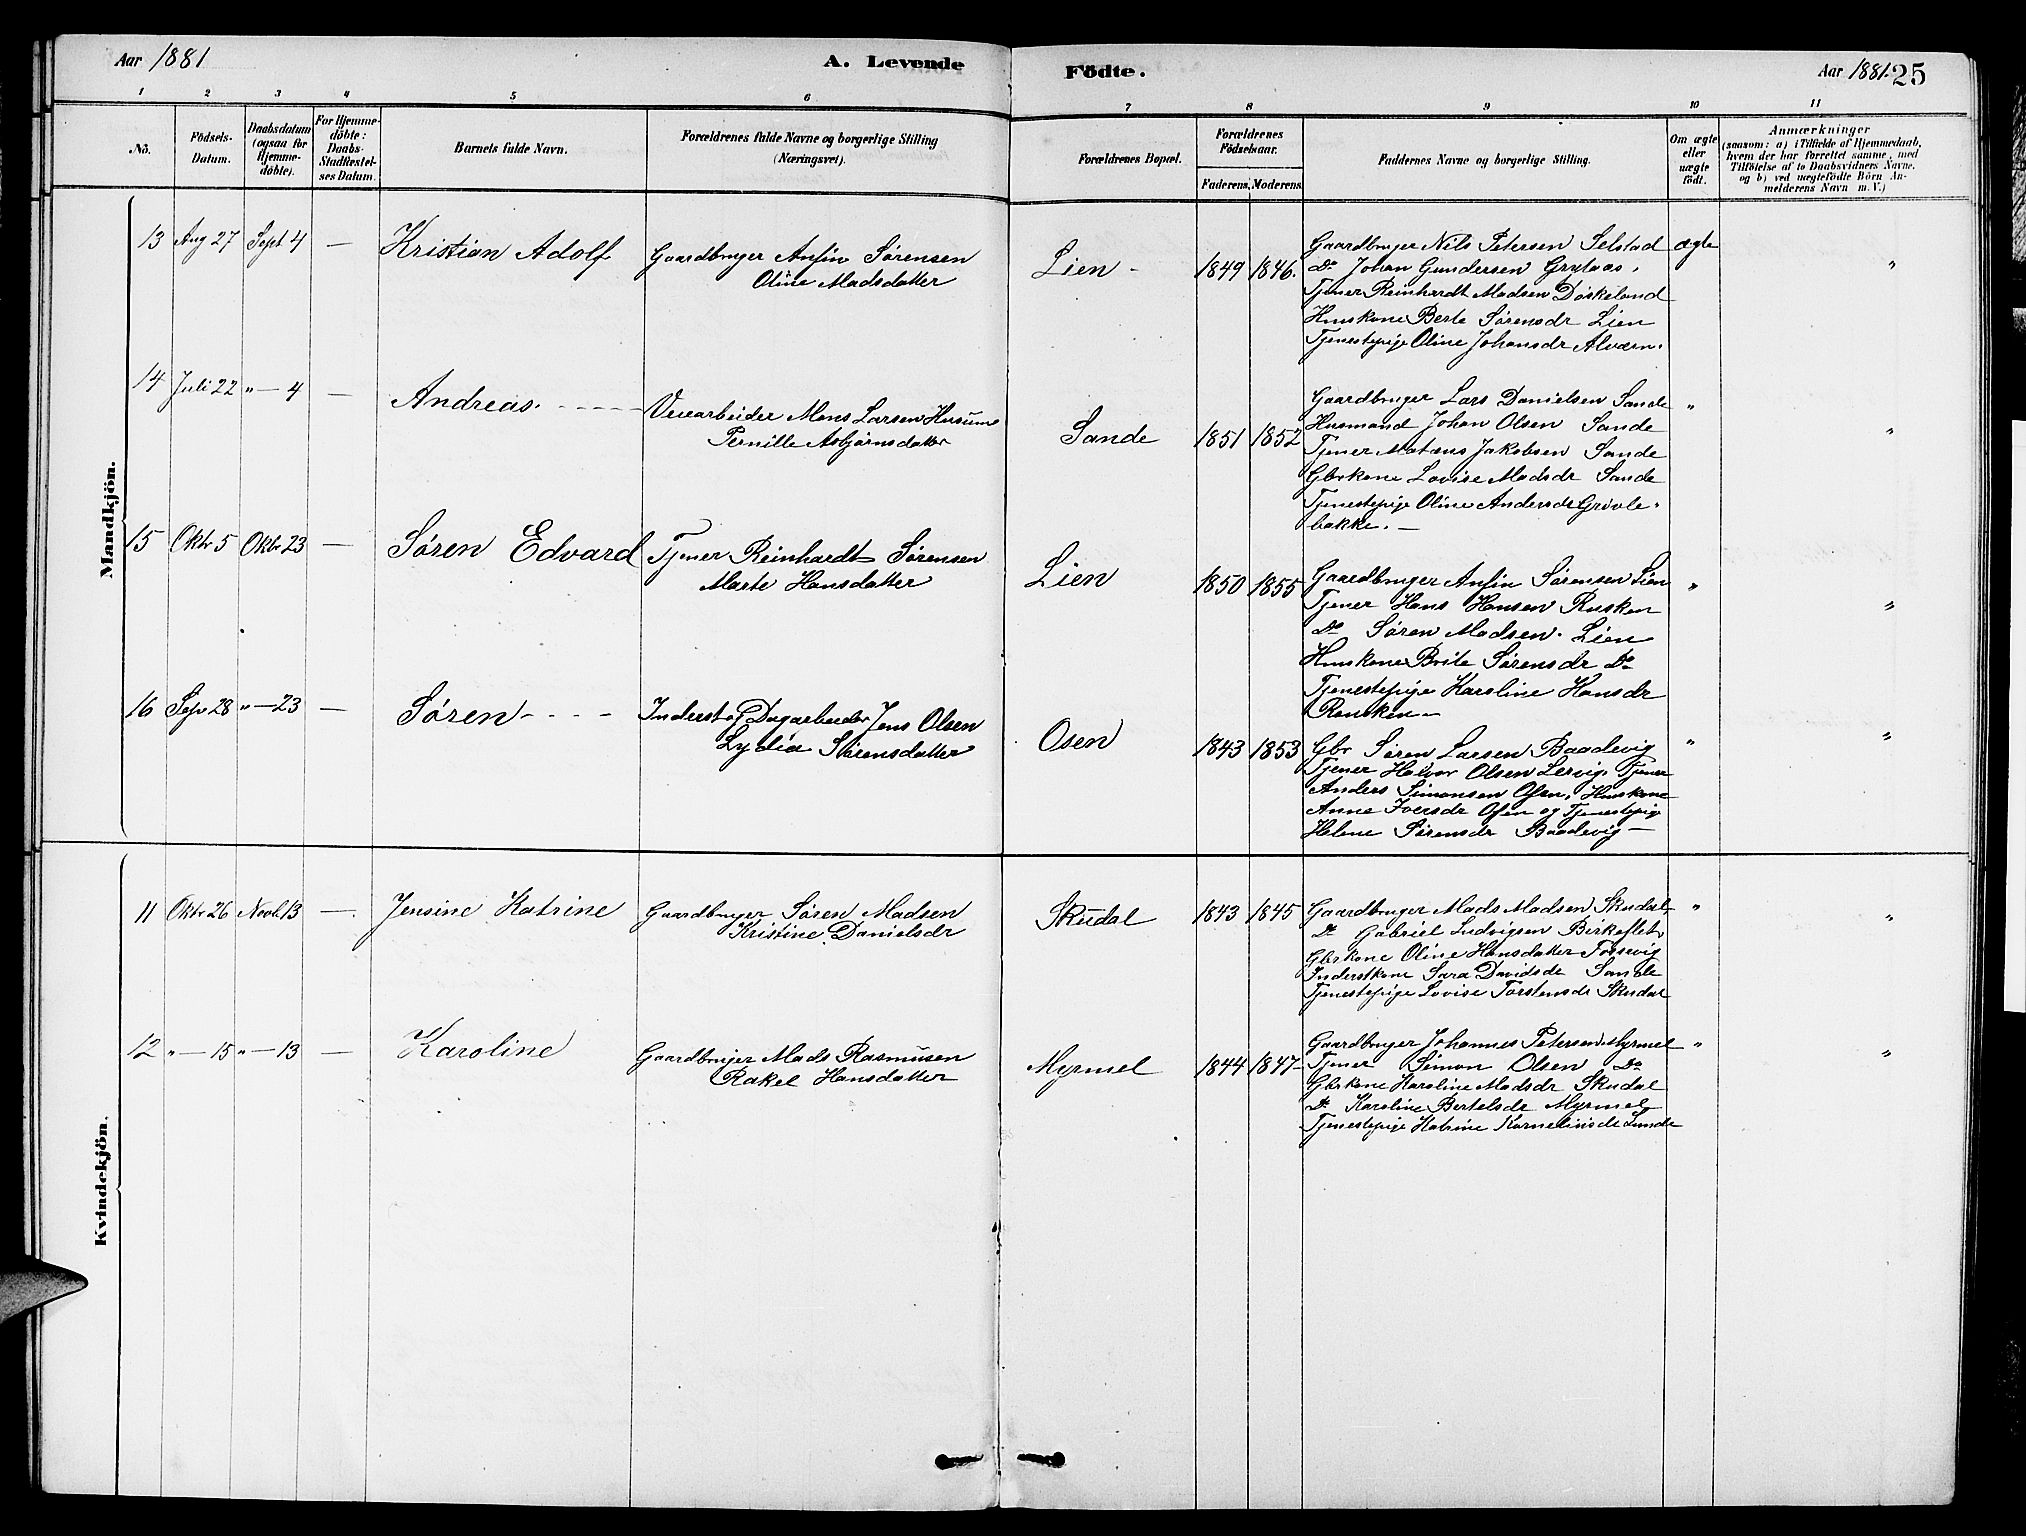 Aar 1881
A. Levende
Födte.
Aar 1881.
25
1 2 3 4 5 6 7 8 9 10 11
No.
Födsels-
Datum.
Daabsdatum
(ogsaa for
Hjemme-
döbte).
For Hjemme-
döbte:
Daabs-
Stadfæstel-
ses Datum.
Barnets fulde Navn.
Forældrenes fulde Navne og borgerlige Stilling
(Næringsvei).
Forældrenes Bopæl.
Forældrenes
Födselsaar.
Faderens. Moderens.
Faddernes Navne og borgerlige Stilling.
Om ægte
eller
uægte
födt.
Anmærkninger
(saasom: a) i Tilfælde af Hjemmedaab,
hvem der har forrettet samme, med
Tilföielse af to Daabsvidners Navne,
og b) ved uægtefödte Börn An-
melderens Navn m. V.)
Mandkjön.
13 Aug 27 Sept 4 — Kristian Adolf
Gaardbruger Anfin Sørensen
Oline Madsdatter
Lien - 1849 1846.
Gaardbruger Nils Petersen Selstad
Do Johan Gundersen Grytaas.
Tjener Reinhardt Madsen Døskeland
Huuskone Berte Sørensdr Lien
Tjenestepige Oline Johansdr Alværn.
ægte "
14 Juli 22 " — 4 — Andreas.
Veiarbeider Mons Larsen Husum
Pernille Asbjørnsdatter
Sande 1851 1852
Gaardbruger Lars Danielsen Sande
Husmand Johan Olsen Sande
Tjener Matæus Jakobsen Sande
Gbrkone Lovise Madsdr Sande
Tjenestepige Oline Andersdr Grovle-
bakke. —
" "
15 Oktr 5 Oktr 23 — Søren Edvard
Tjener Reinhardt Sørensen
Marte Hansdatter
Lien 1850 1855
Gaardbruger Anfin Sørensen Lien
Tjener Hans Hansen Rusken
Do Søren Madsen. Lien
Huuskone Brite Sørensdr Do
Tjenestepige Karoline Hansdr
Rensken —
" "
16 Sepr 28 " — 23 — Søren - - - -
Inderst og Dagarbeider Jens Olsen
Lydia Sørensdatter
Osen 1843 1853
Gbr Søren Larsen Baadevig
Tjener Halvor Olsen Lervig. Tjener
Anders Simonsen Osen, Huuskone
Anne Iversdr Osen og Tjenestepig
Helene Sørensdr Baadevig —
" "
Kvindekjön.
11 Oktr 26 Novb 13 — Jensine Katrine
Gaardbruger Søren Madsen
Kristine Danielsdr
Skudal 1843 1845
Gaardbruger Mads Madsen Skudal,
Do Gabriel Ludvigsen Birkeflet,
Gbrkone Oline Hansdatter Torsvig
Inderstkone Sara Davidsdr Sande
Tjenestepige Lovise Torstensdr Skudal
" "
12 " — 15 " — 13 — Karoline
Gaardbruger Mads Rasmusen
Rakel Hansdatter
Myrmel 1844 1847-
Gaardbruger Johannes Petersen Myrmel
Tjener Simon Olsen Do
Gbrkone Karoline Madsdr Skudal
Do Karoline Bertelsdr Myrmel
Tjenestepige Katrine Korneliusdr Sande
" "